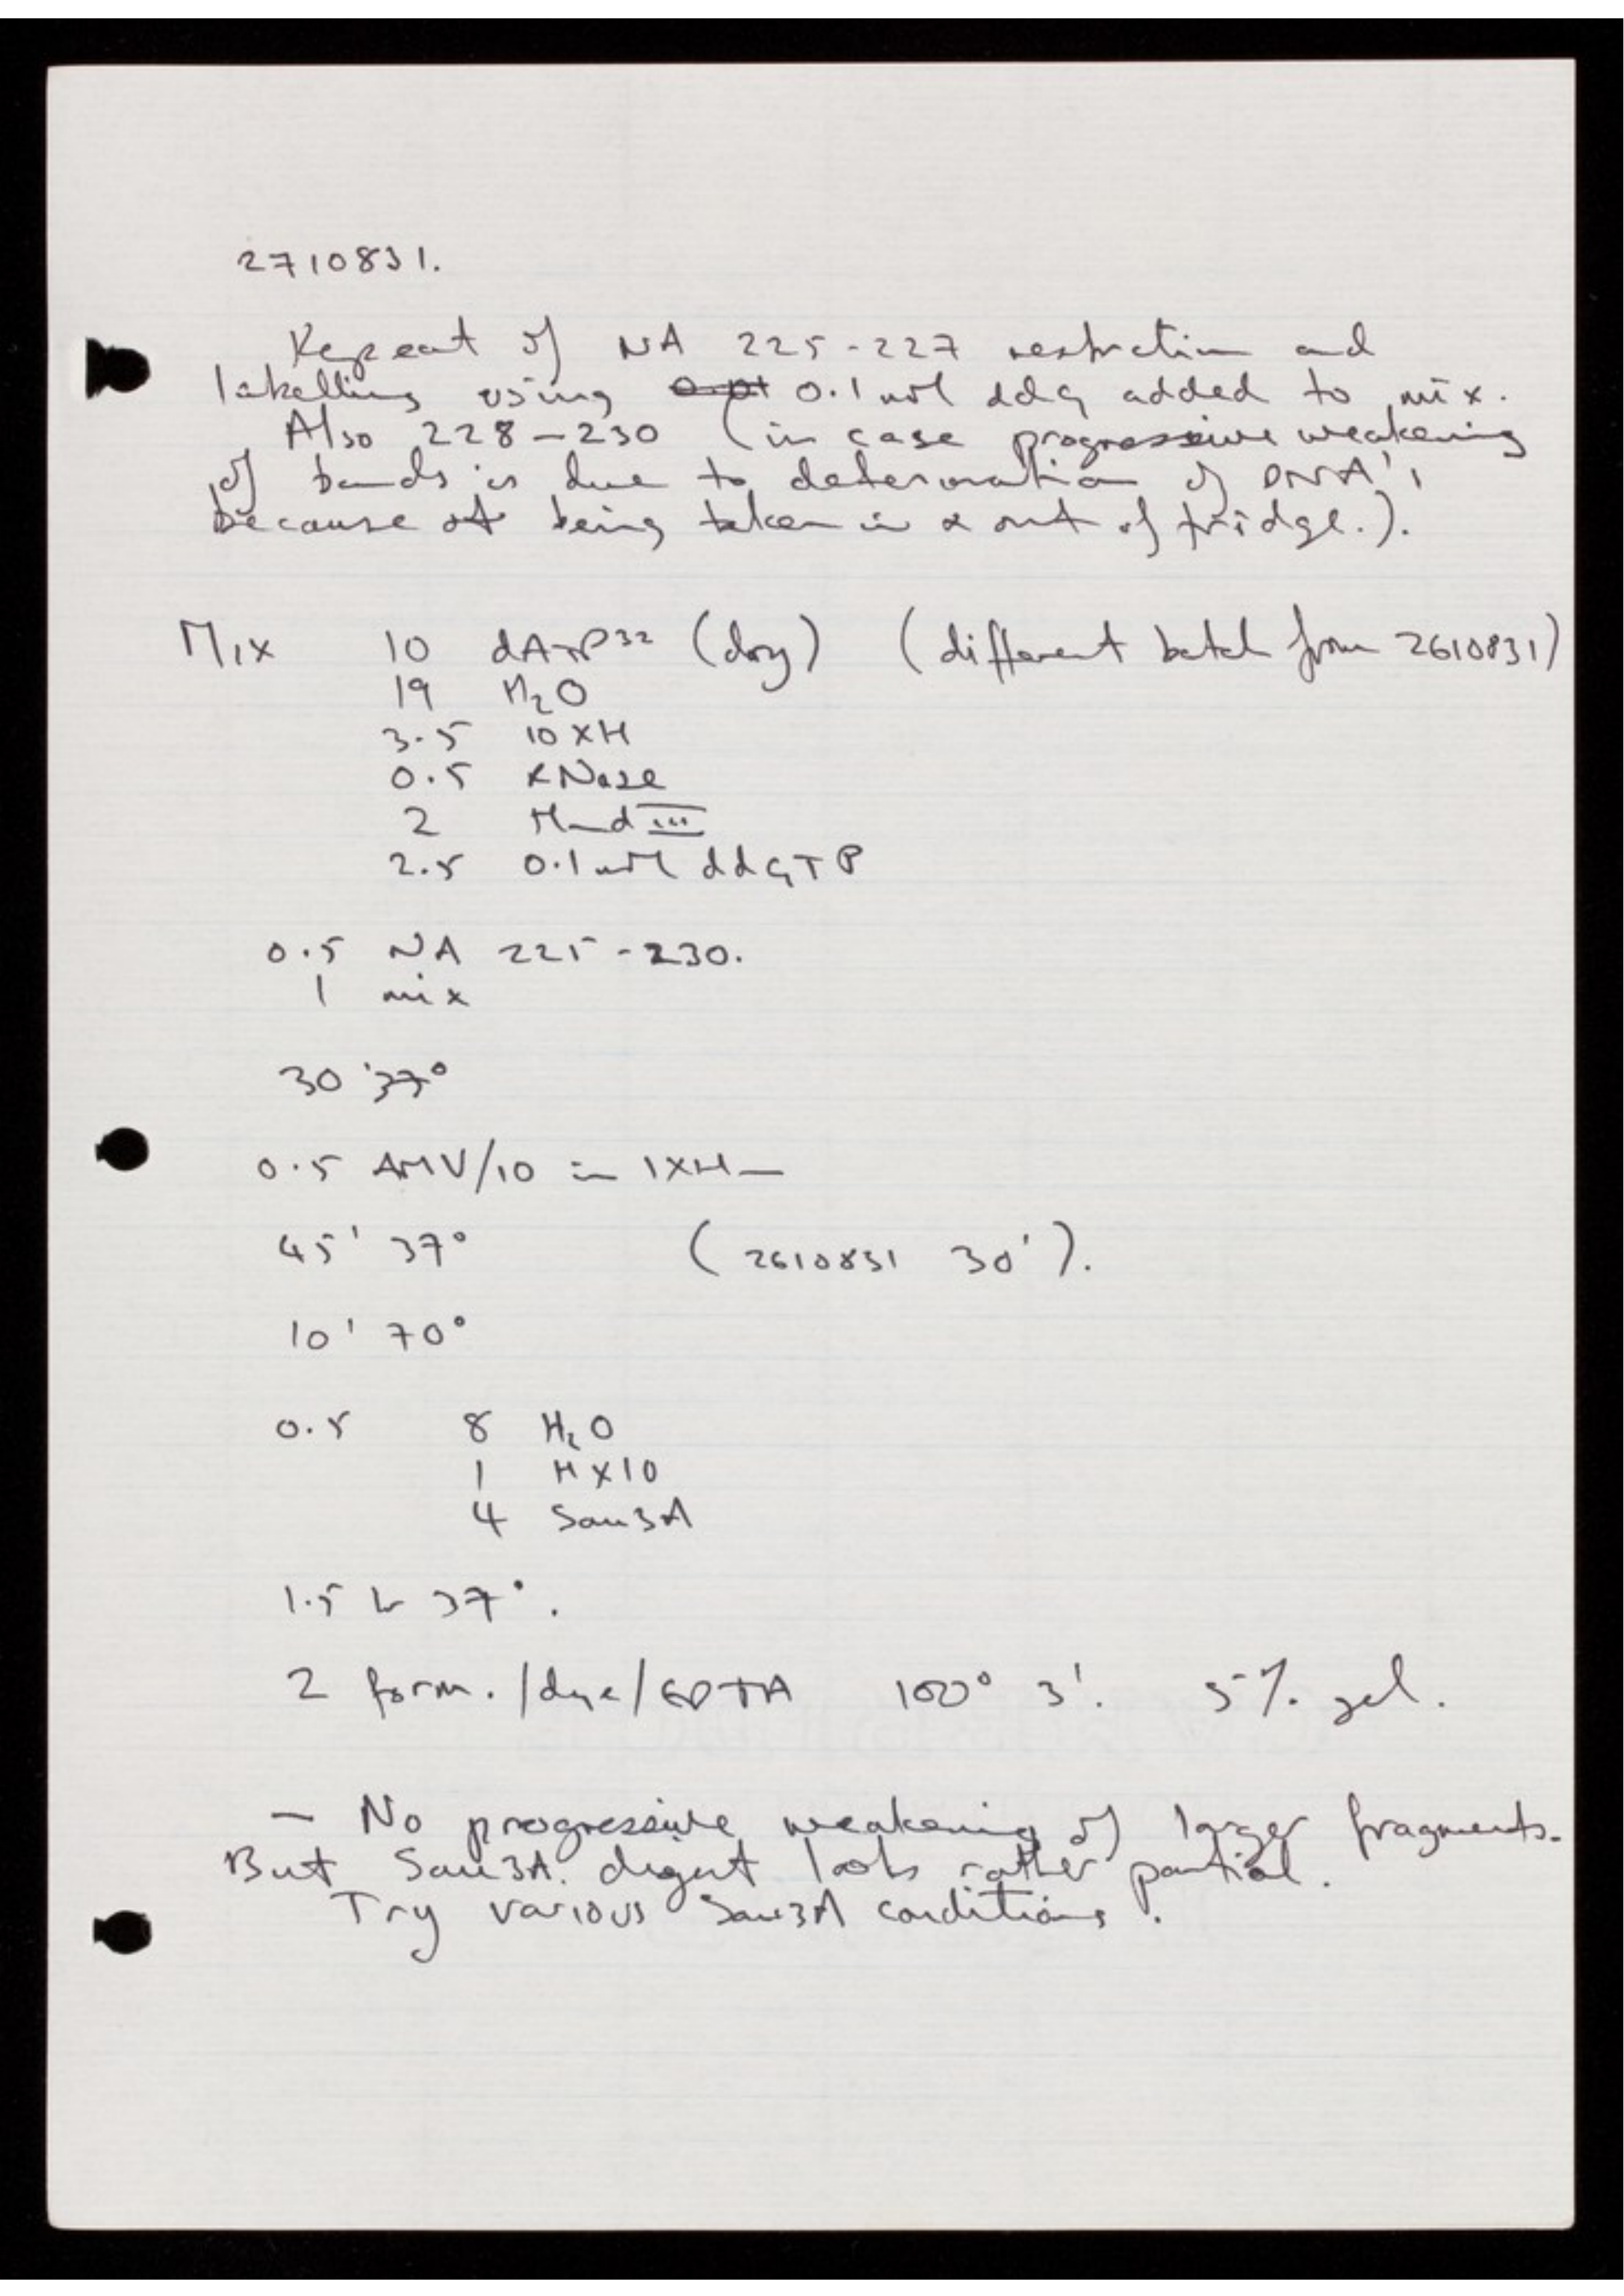 2710831.
Repeat of NA 225-227 restriction and
labelling using 0.1 mM ddG added to mix.
Also 228-230 (in case progressive weakening
of bands is due to deterioration of DNA's
because of being taken in & out of fridge.).
Mix 10 dATP32 (dry) (different batch from 2610831)
19 H2O
3.5 10xH
0.5 RNase
2 Hind III
2.5 0.1 mM ddGTP
0.5 NA 225-230.
1 mix
30' 37°
0.5 AMV/10 in 1xH
45' 37° (2610831 30').
10' 70°
0.5 8 H2O
1 Hx10
4 Sau3A
1.5 hr 37°.
2 form./dye/EDTA 100° 3'. 5% gel.
— No progressive weakening of larger fragments.
But Sau3A digest looks rather partial.
Try various Sau3A conditions.